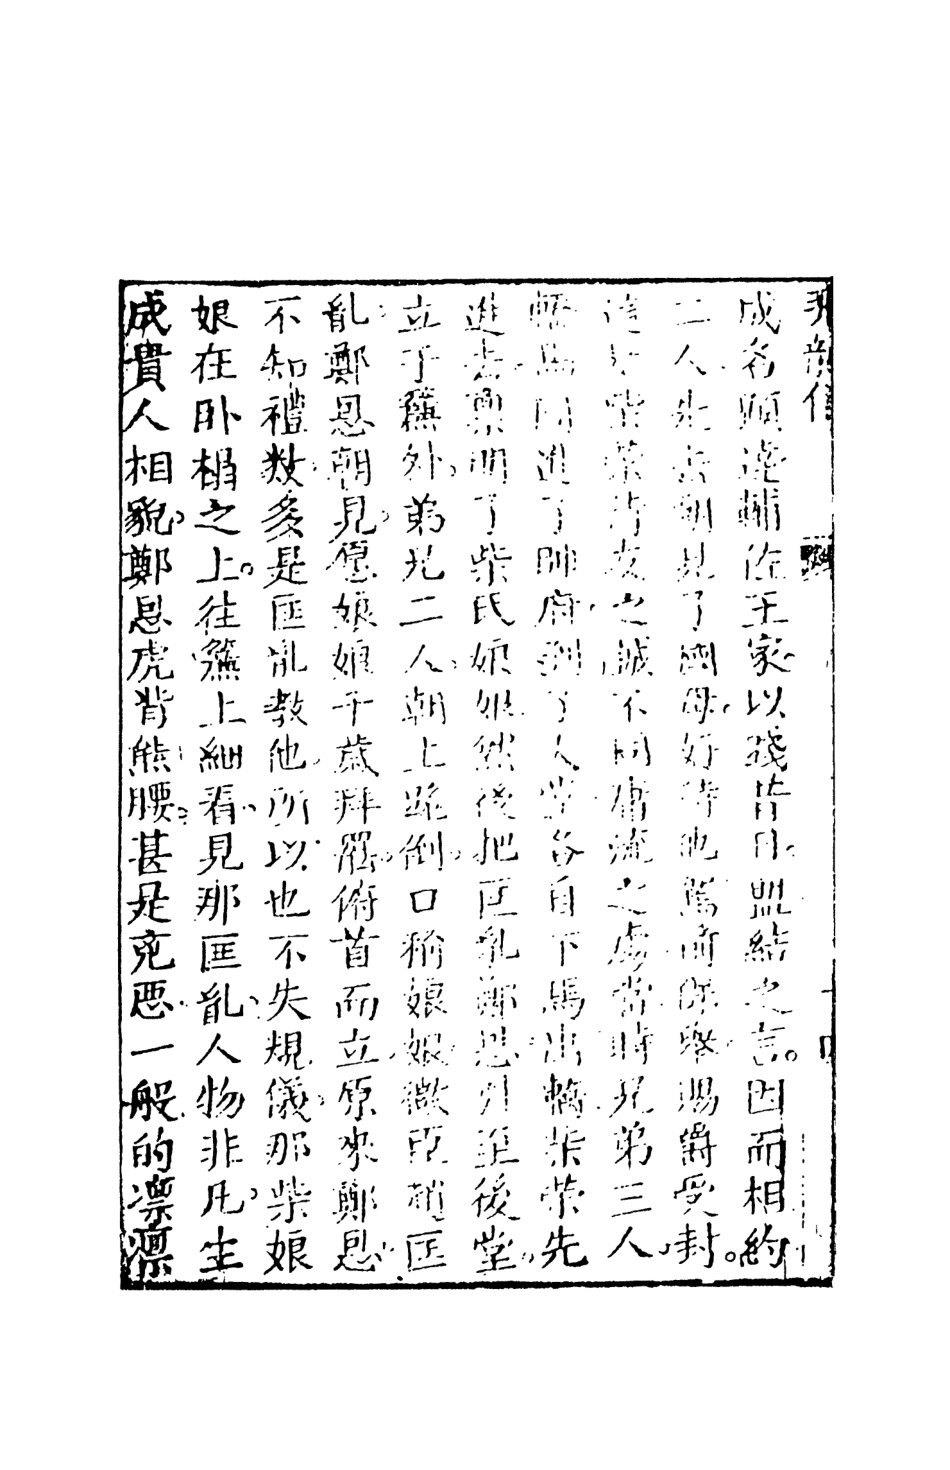 成名顯達輔佐王家以踐昔日盟結之言。因而相約
二人先去朝見了國母好待他駕前保舉賜爵受封。
這是柴榮背友之誠不同庸流之處當時兄弟三人
轎馬同進了帥府到了人堂各自下馬出轎柴榮先
進去稟明了柴氏娘娘然後把匡胤鄭恩引至後堂。
立于簾外。弟兄二人朝上跪倒。口稱娘娘微臣趙匡
胤鄭恩朝見愿娘娘千歲拜罷俯首而立原來鄭恩
不知禮数多是匡胤教他所以也不失規儀那柴娘
娘在卧榻之上。往簾上細看見那匡胤人物非凡生
成貴人相貌鄭恩虎背熊腰甚是兇惡一般的凛凛